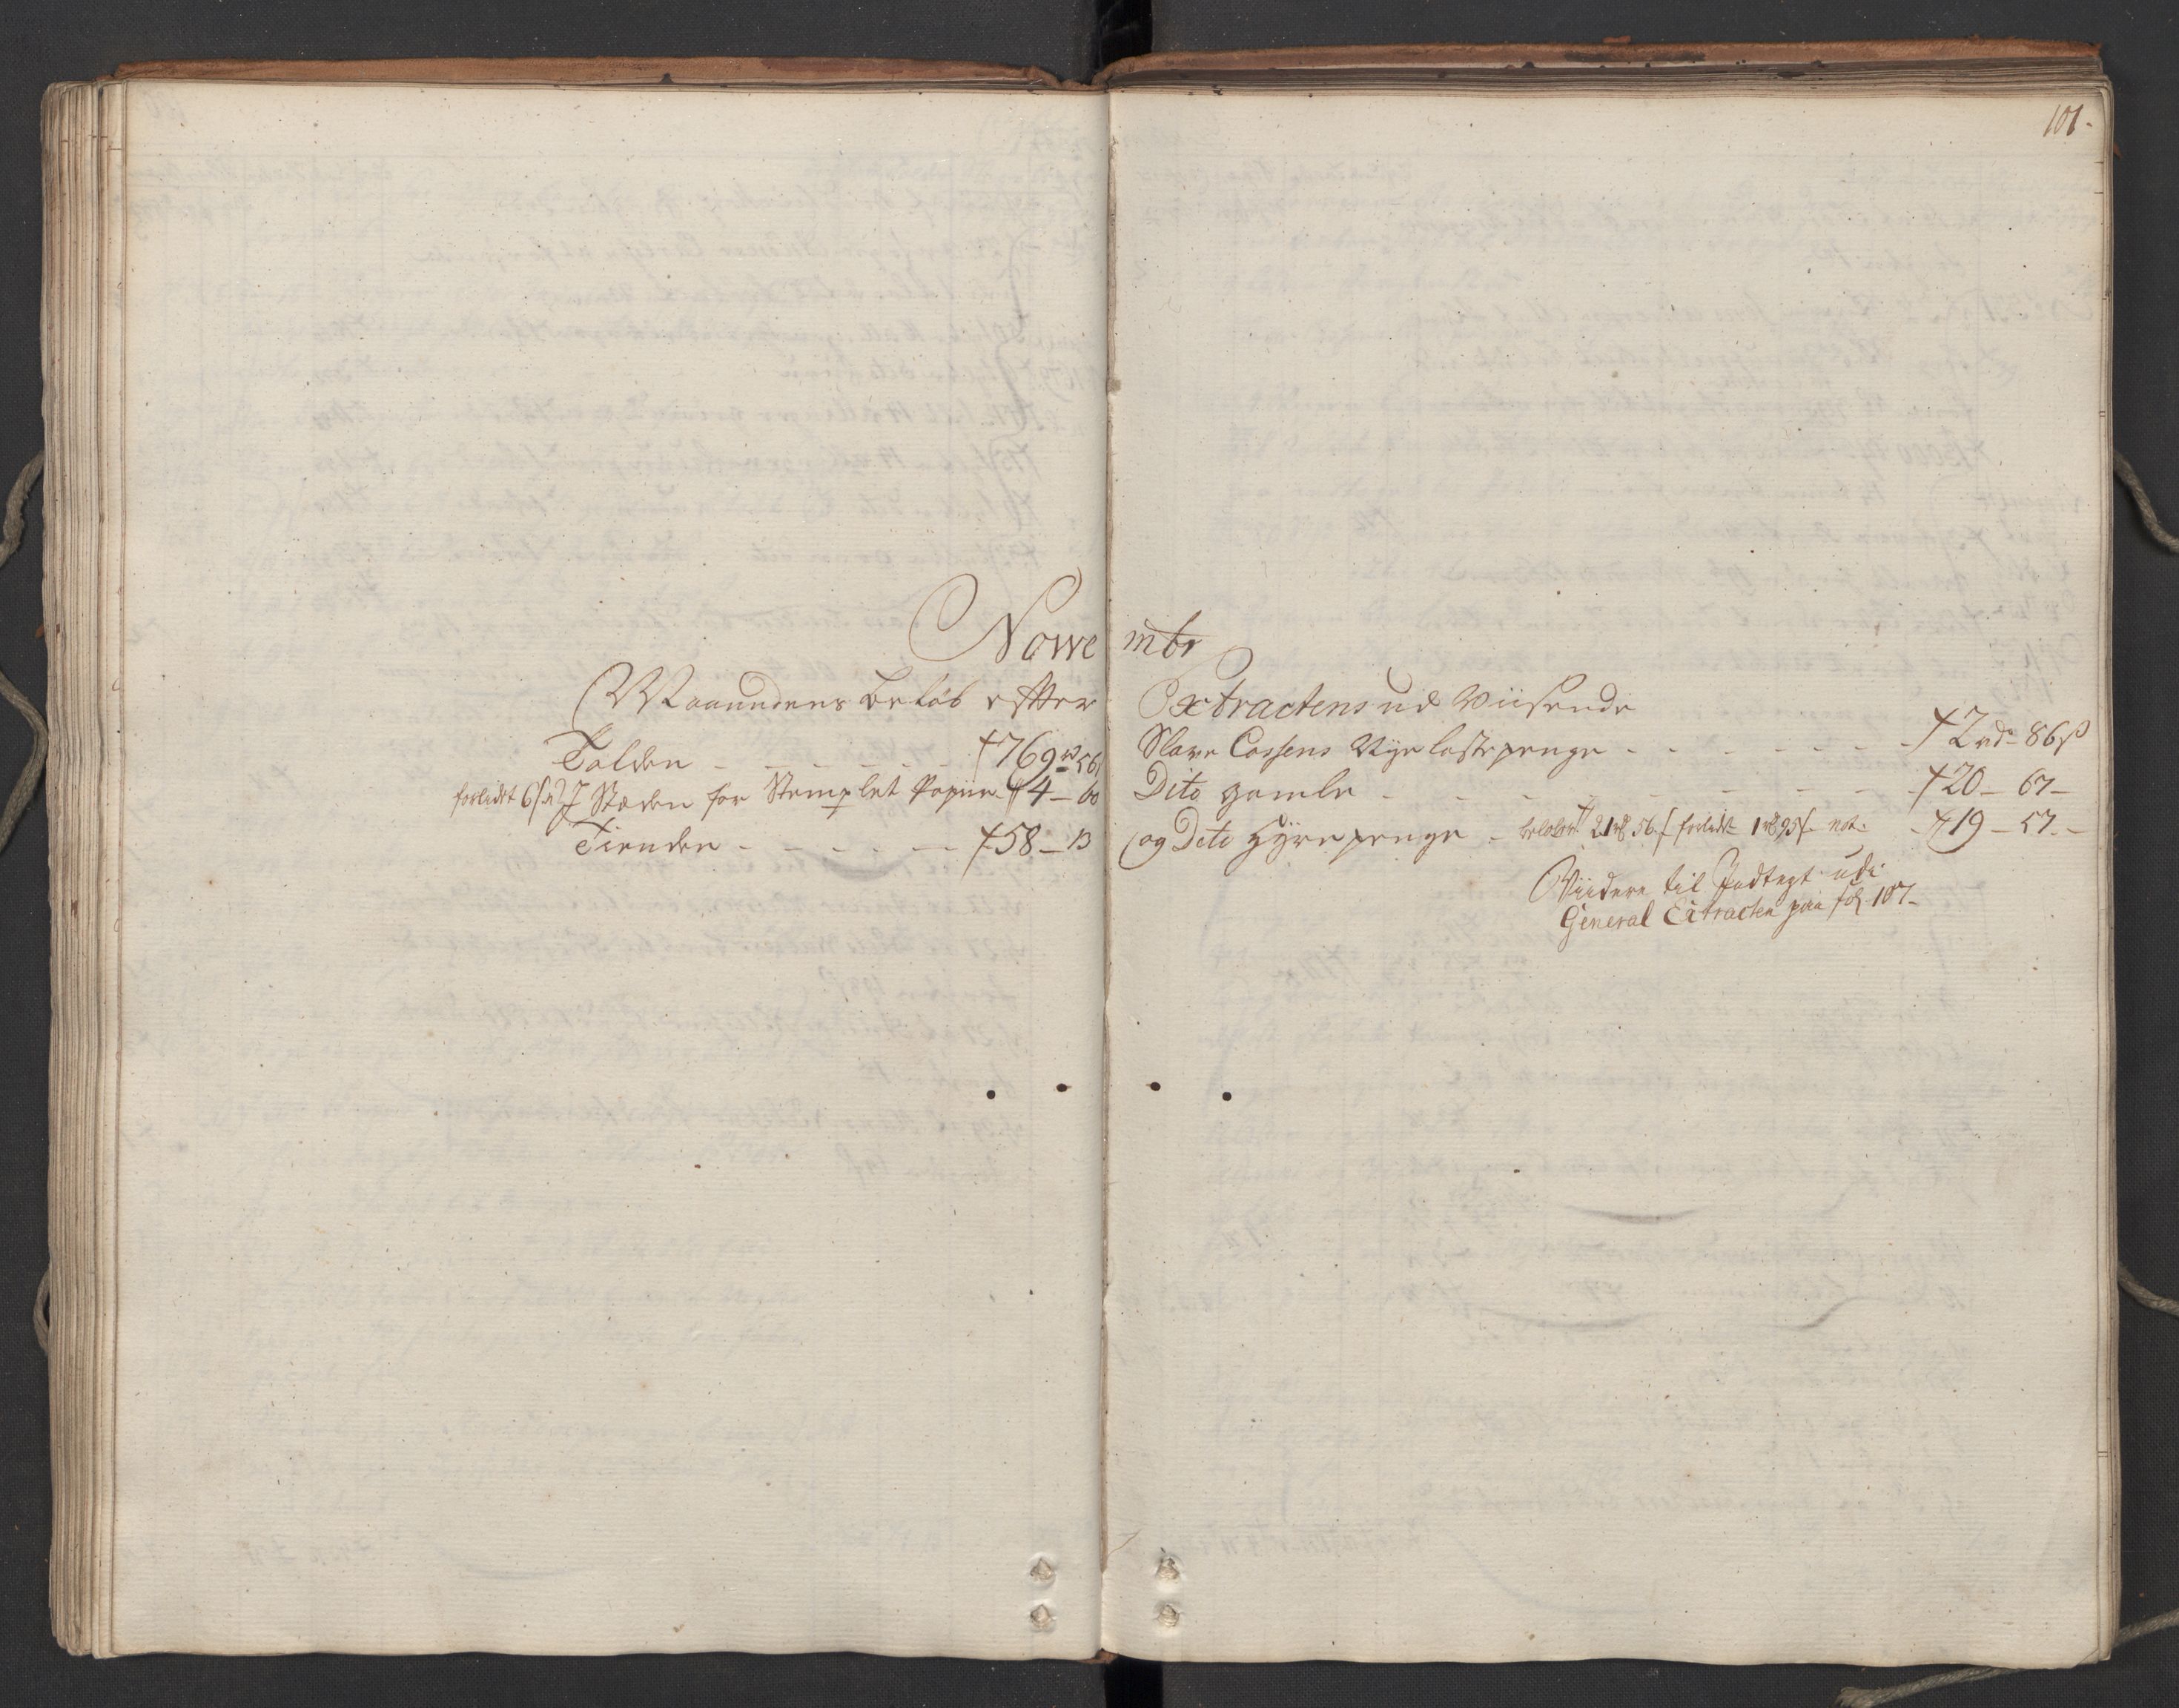 101.
Nowembr
Maanedens beløb efter Extractens ud Viisende
Tolden - - - - - - 769 rd 56
forledet 6 s. I Stæden for Stemplet Papiir 4 - 60
Tienden - - - - - - 58 - 13
Slave Cassens Nye lastepenge - - - - - - - 2 rd - 86 s
Dito gamle - - - - - - - - 20 - 67 -
og Dito Hyrepenge - beløber 21 rd 56 s forledet 1 rd 95 s not. - 19 - 57 -
Viidere til Indtegt udi
General Extracten paa fol. 107 -